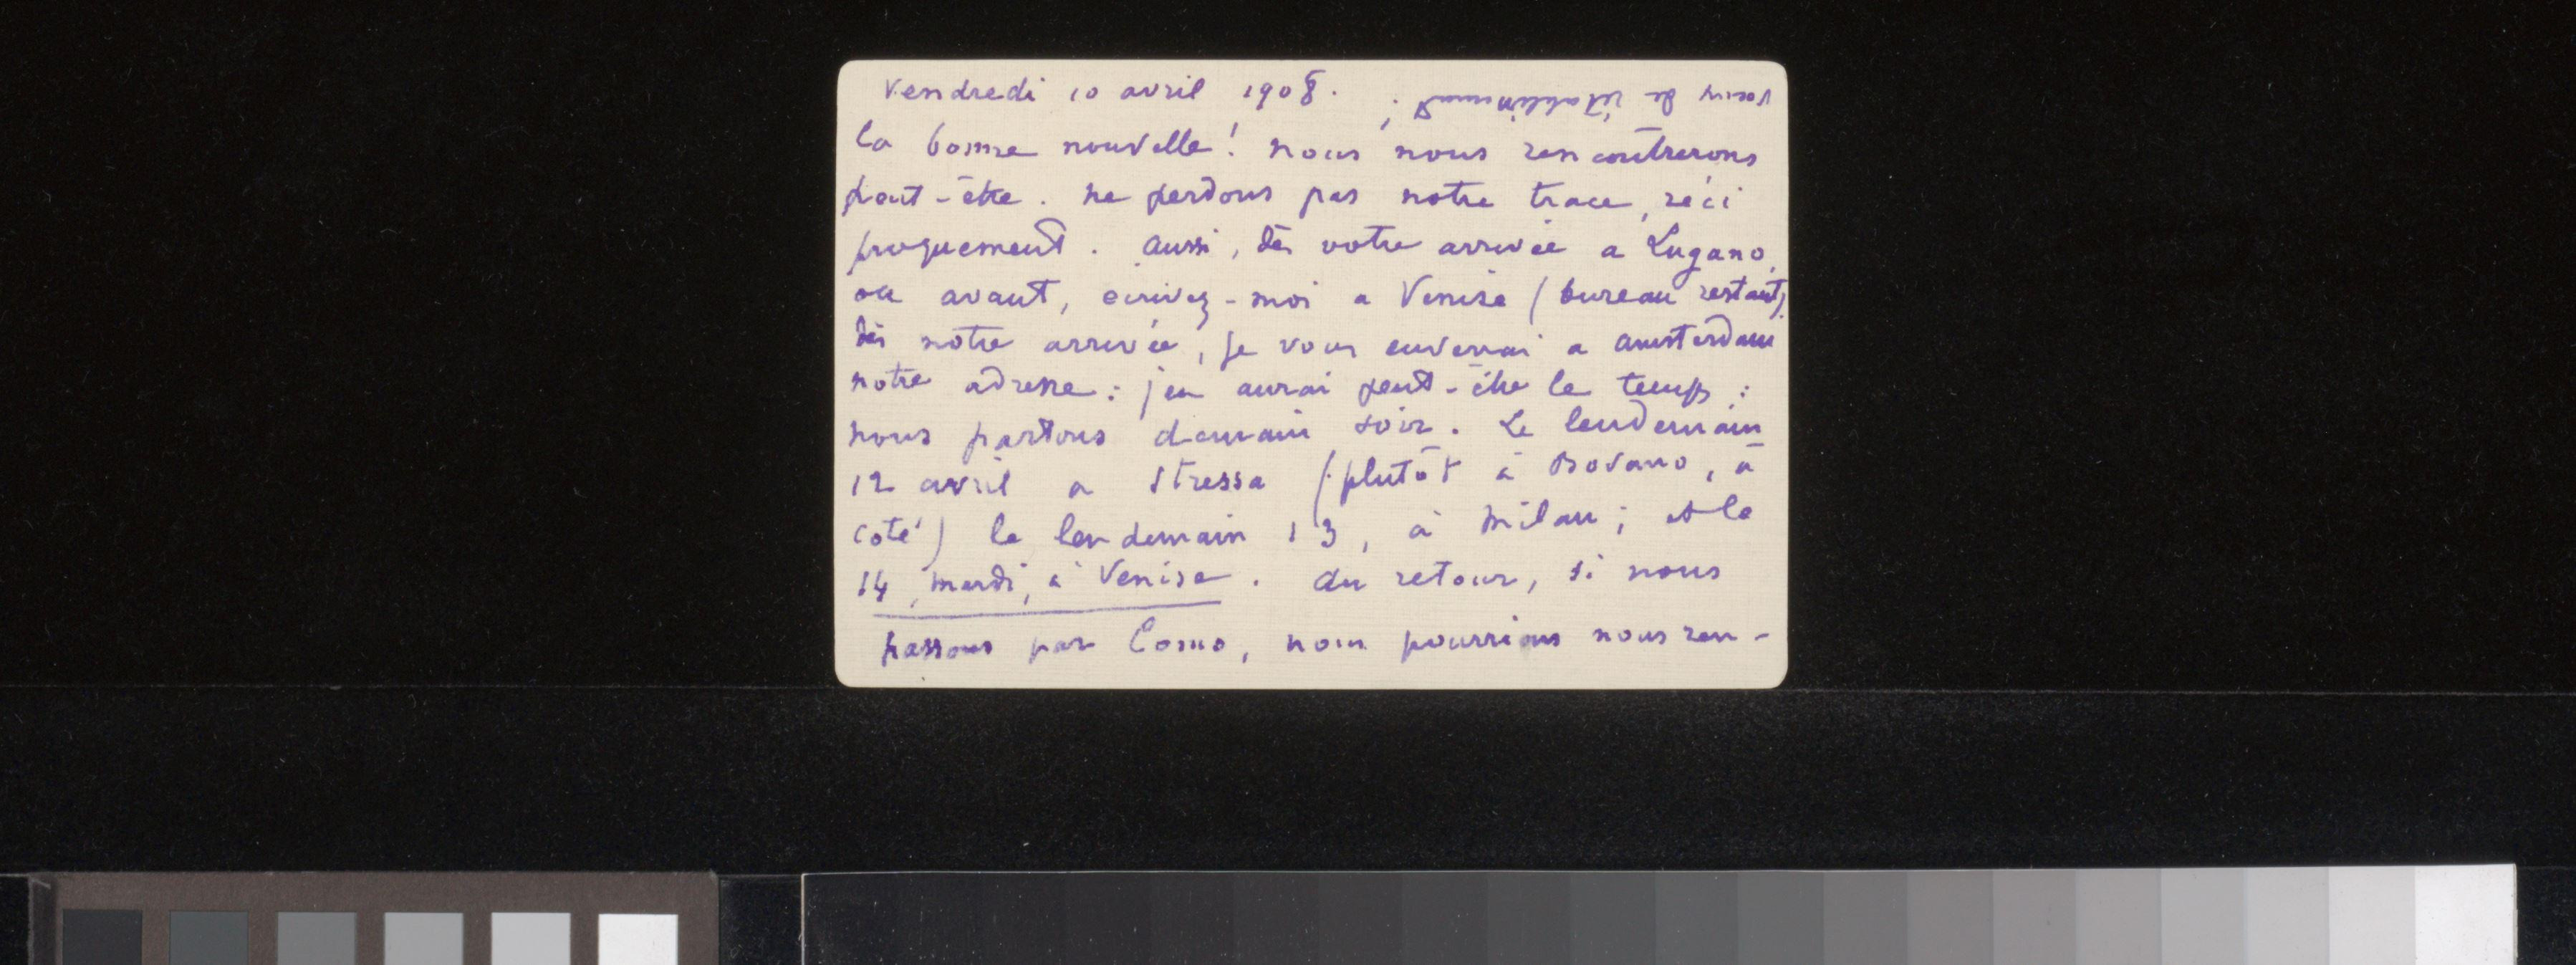 Vendredi 10 avril 1908.
voeux de rétablissement ;
la bonne nouvelle! nous nous rencontrerons
peut-être. ne perdons pas notre trace, réci
proquement. aussi, dès votre arrivée a Lugano,
ou avant, ecrivez-moi a Venise (bureau restant)
dès notre arrivée, je vous enverrai a amsterdam
notre adresse : j'en aurai peut-être le temps :
nous partons demain soir. Le lendemain
12 avril a Stressa (plutôt à Bovano, à
coté) le lendemain 13, à Milan ; et le
14, mardi, à Venise. Au retour, si nous
passons par Como, nous pourrions nous ren-